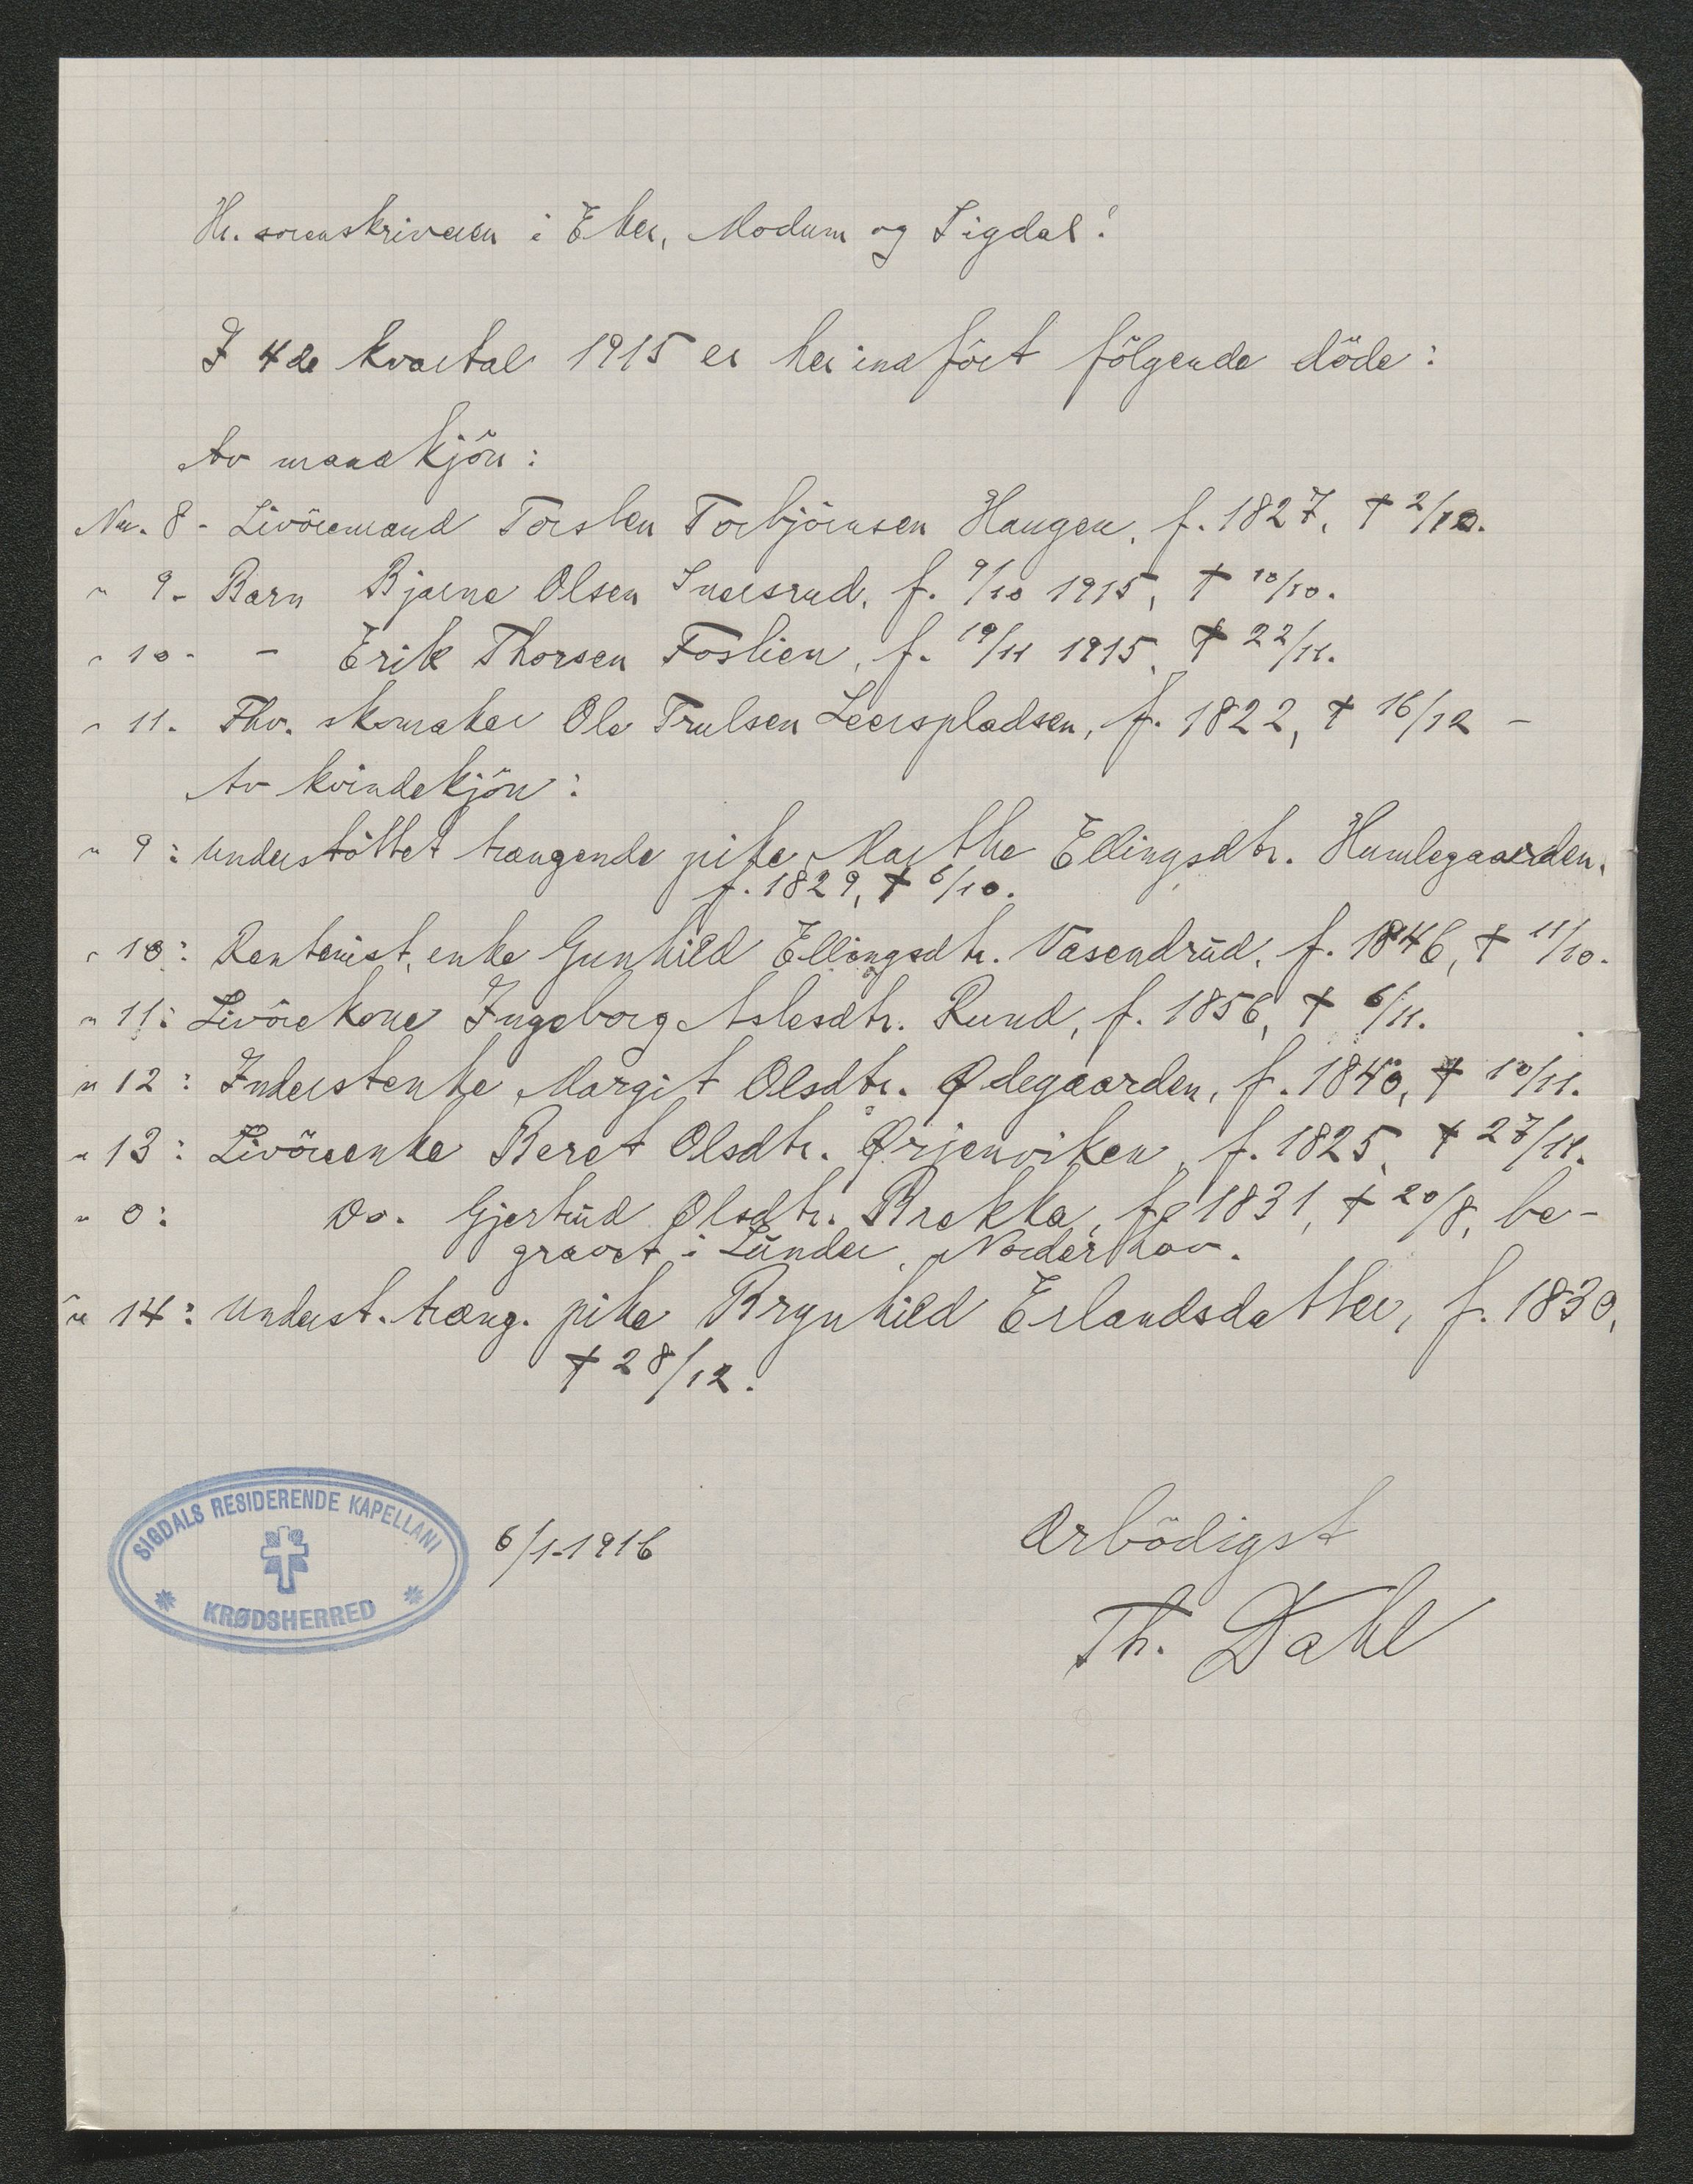 Hr. sorenskriveren i Eker, Modum og Sigdal!
I 4de kvartal 1915 er her indført følgende døde:
Av mandkjøn:
Nr. 8 - Livøremand Torsten Torbjørnsen Haugen, f. 1827, † 2/10.
" 9 - Barn Bjarne Olsen Snersrud, f. 9/10 1915, † 10/10.
" 10 - - Erik Thorsen Foslien, f. 19/11 1915, † 22/11.
" 11. Fhv. skomaker Ole Trulsen Leerspladsen, f. 1822, † 16/12 -
Av kvindekjøn:
" 9: Understøttet trængende pike Marthe Ellingsdtr. Humlegaarden,
f. 1829, † 6/10.
" 10: Renterist, enke Gunhild Ellingsdtr. Vasendrud, f. 1846, † 11/10.
" 11: Livørekone Ingeborg Aslesdtr. Rund, f. 1856, † 6/11.
" 12: Inderstenke Margit Olsdtr. Ødegaarden, f. 1840, † 10/11.
" 13: Livøreenke Beret Olsdtr. Ørjenviken, f. 1825, † 27/11.
" 0: Do. Gjertrud Olsdtr. Brekka, f. 1831, † 20/8, be-
gravet i Lunder, Norderhov.
" 14: Underst. træng. pike Brynhild Erlandsdatter, f. 1830,
† 28/12.
SIGDALS RESIDERENDE KAPELLANI
KRØDSHERRED
6/1-1916
Ærbødigst
Th. Dahl